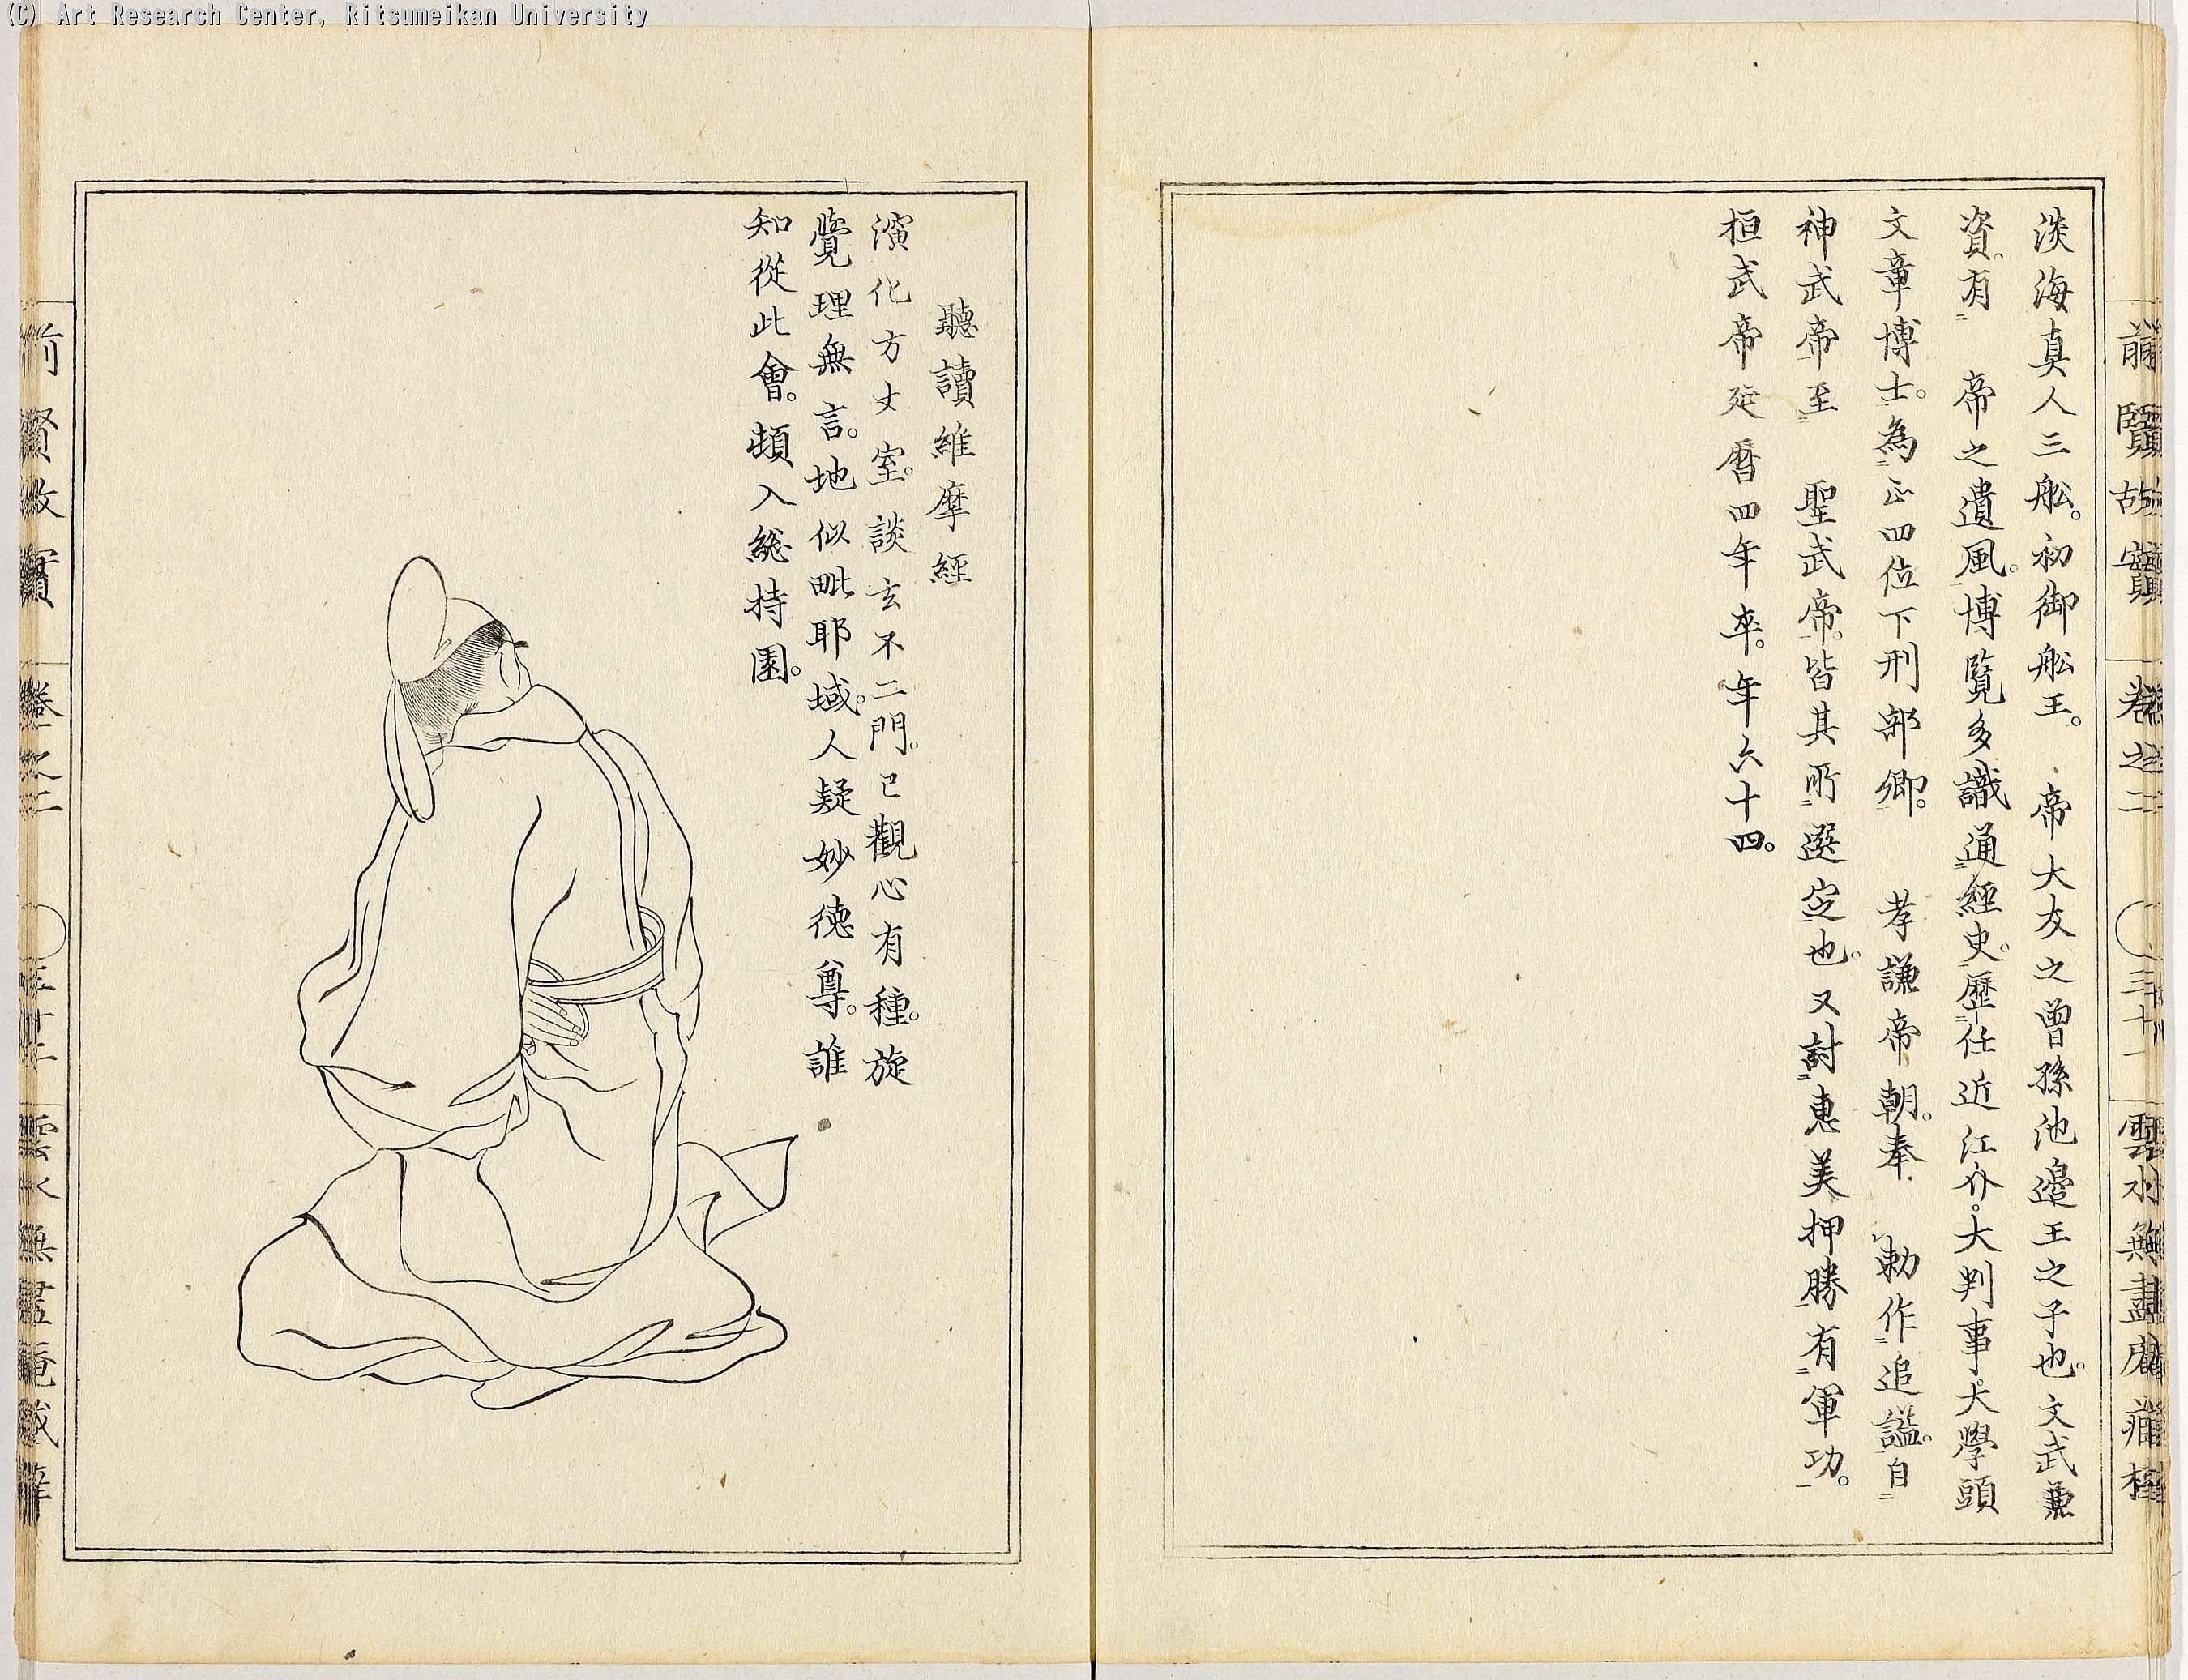 (C) Art Research Center, Ritsumeikan University
前賢故實 卷之二 三十一 雲水無盡庵藏梓
淡海真人三舩。初御舩王。 帝大友之曾孫池邉王之子也。文武兼
資。有 帝之遺風。博覧多識通經史。歷任近江介。大判事。大學頭
文章博士。為正四位下刑部卿。 孝謙帝朝。奉 勅作追謚。自
神武帝至 聖武帝。皆其所選定也。又討惠美押勝有軍功。
桓武帝延暦四年卒。年六十四。
聽讀維摩經
演化方丈室。談玄不二門。已觀心有種。旋
覺理無言。地似毗耶域。人疑妙德尊。誰
知從此會。頓入総持園。
前賢故實 卷之二 雲水無盡庵藏梓